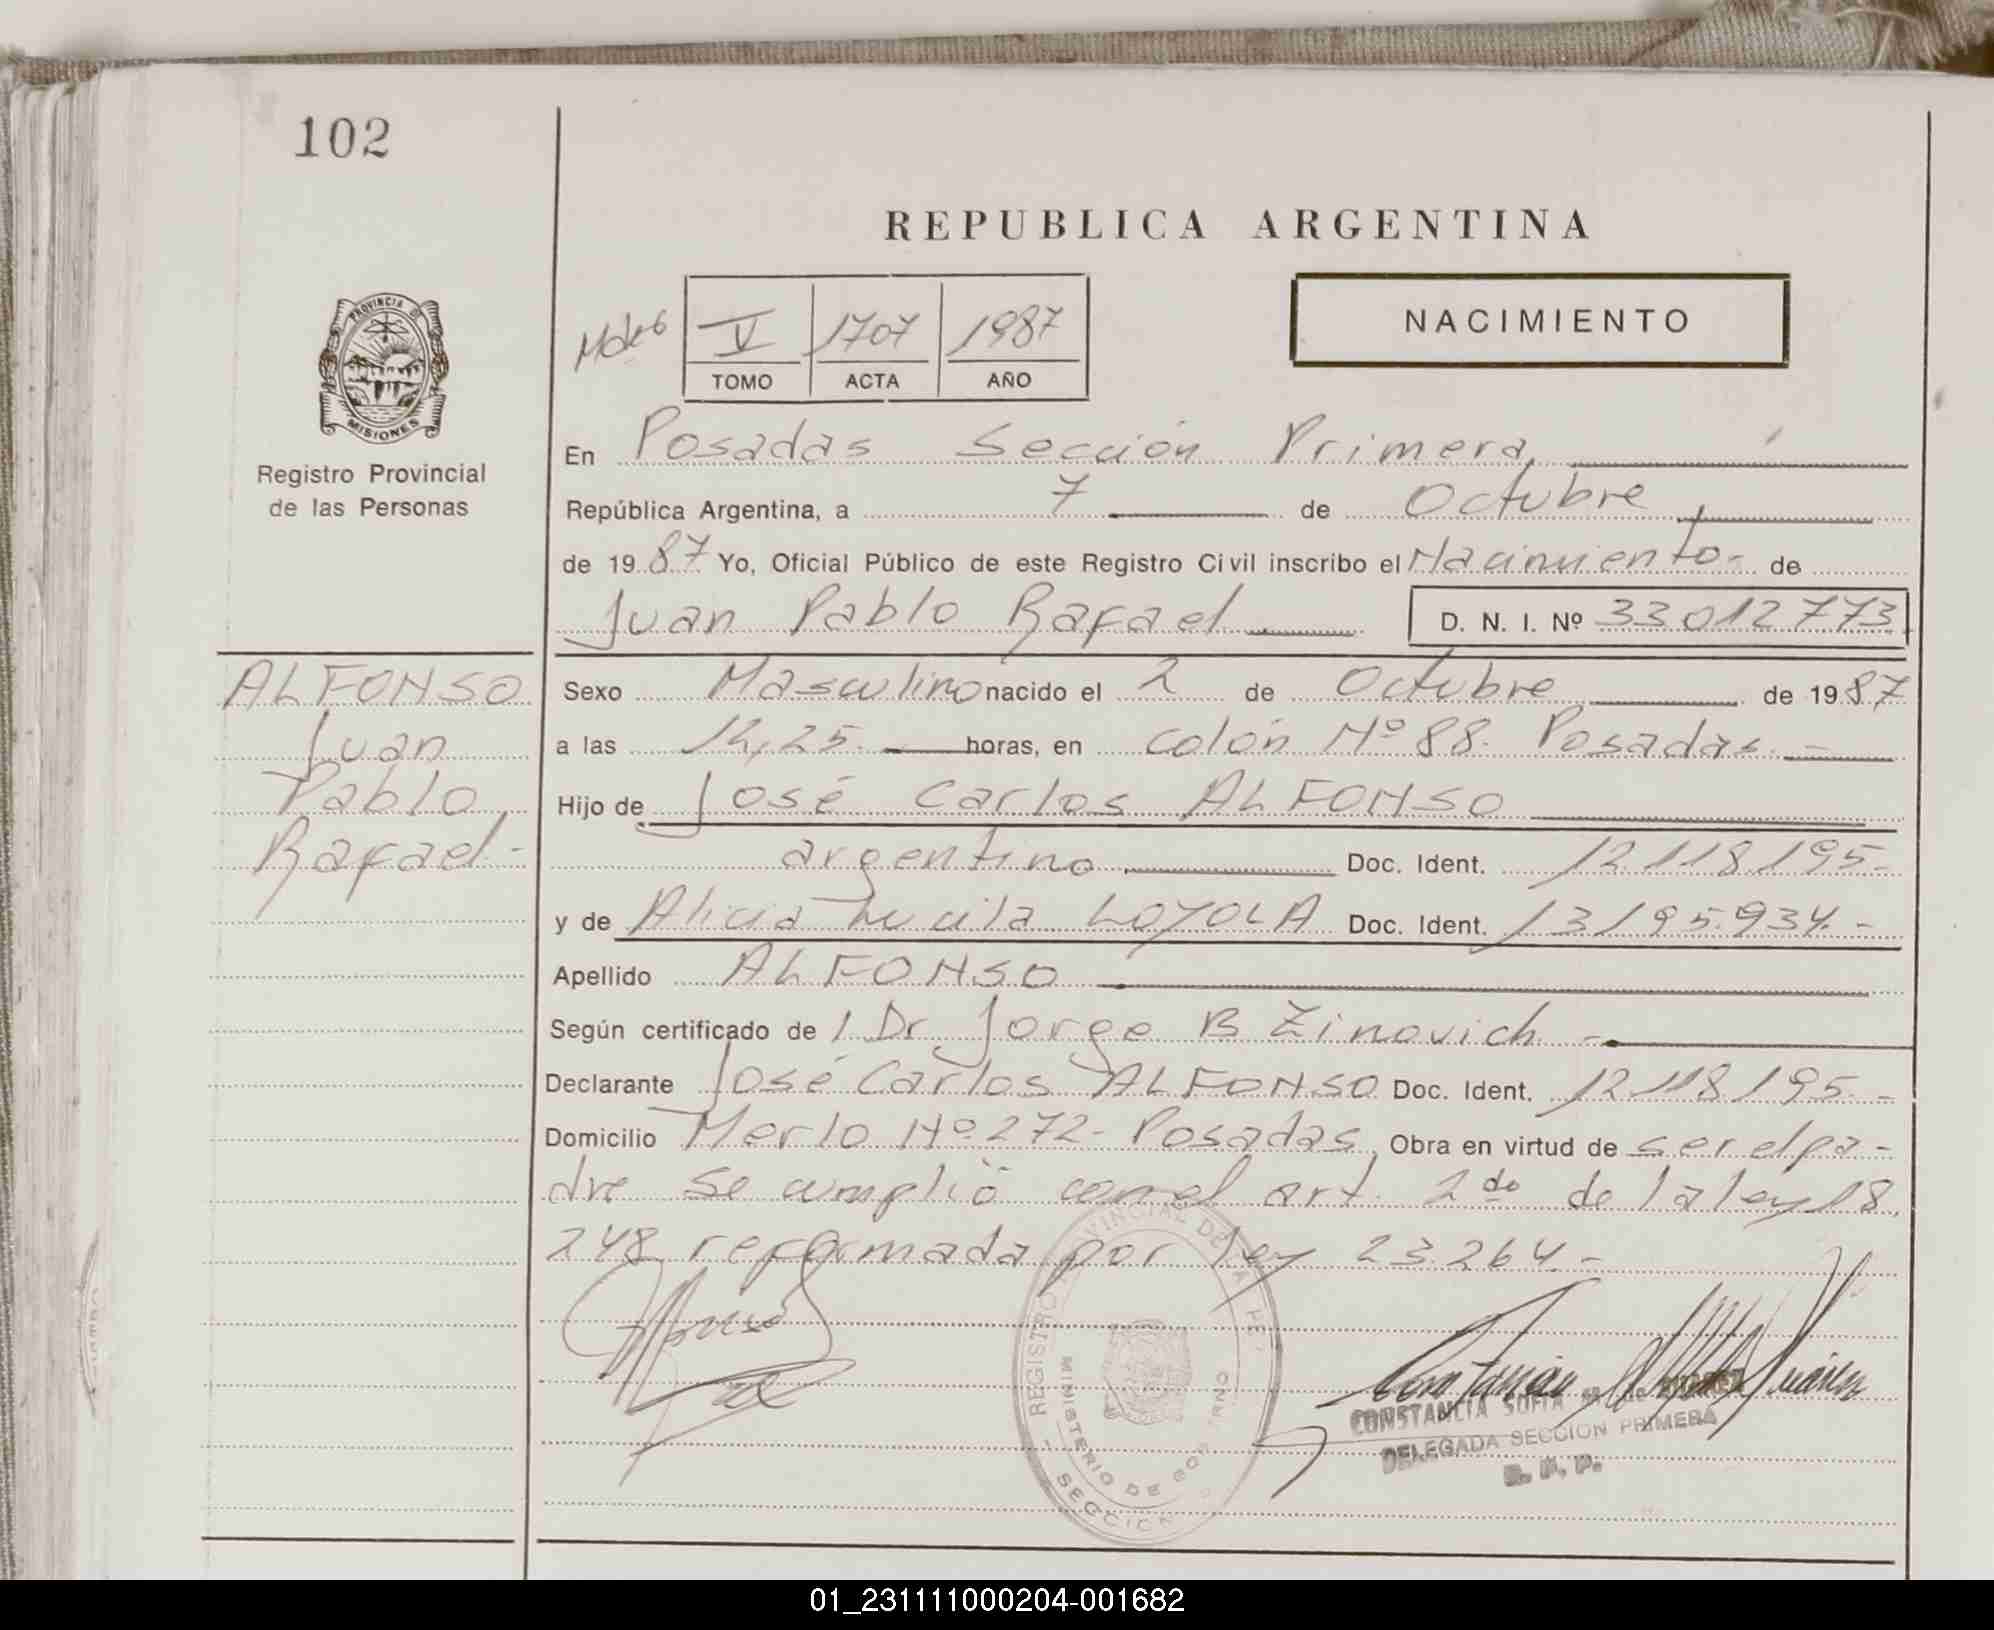 102
REPUBLICA ARGENTINA
NACIMIENTO
V 1707 1987
TOMO ACTA AÑO
PROVINCIA D
MISIONES
Registro Provincial
de las Personas
En Posadas Sección Primera
República Argentina, a 7 de Octubre
de 1987 Yo, Oficial Público de este Registro Civil inscribo el Nacimiento- de
Juan Pablo Rafael D. N. I. Nº 33012773
ALFONSO
Juan
Pablo
Rafael-
Sexo Masculino nacido el 2 de Octubre de 1987
a las horas, en Colón Nº 88. Posadas.-
Hijo de José Carlos ALFONSO
argentino Doc. Ident. 12.118.195-
y de Alicia Lucila LOYOLA Doc. Ident. 13195.934.-
Apellido ALFONSO
Según certificado de Dr Jorge B Zinovich -
Declarante José Carlos ALFONSO Doc. Ident. 12.118195.-
Domicilio Merlo Nº 272- Posadas Obra en virtud de ser el pa-
dre se cumplió con el art. 2do de la ley 18.
248 reformada por ley 23.264.-
REGISTRO PROVINCIAL DE LA
MINISTERIO DE
CONSTANCIA SOFIA
DELEGADA SECCION PRIMERA
R. P. P.
01_231111000204-001682